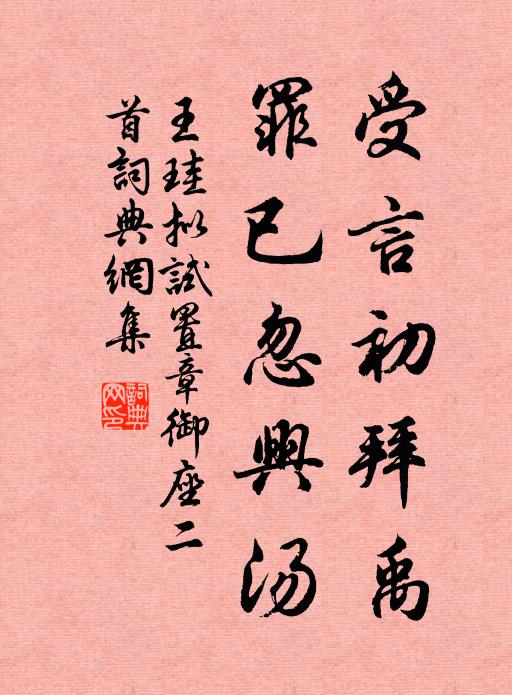 受言初拜禹
罪已忽興汤
王珪拟試置章御座二
首詞典網集
詞典
网印